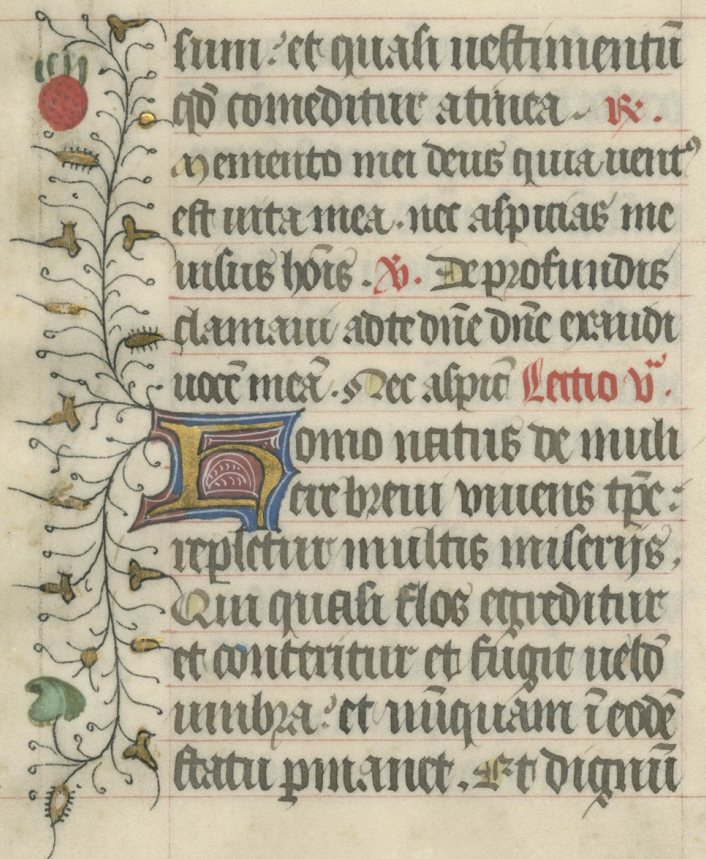 sum: et quasi uestimentū
qd̄ comeditur a tinea ℟.
Memento mei deus quia uentꝰ
est uita mea . nec aspicias me
uisus hōis . ℣. De profundis
clamaui ad te dn̄e dn̄e exaudi
uocē meā . Nec aspic̄ Lectio v̄.
Homo natus de muli
ere breui viuens tp̄e :
repletur multis miserijs .
Qui quasi flos egreditur
et conteritur et fugit uelud̄
umbra : et nūquam ī eodē
statu ꝑmanet . Et dignū